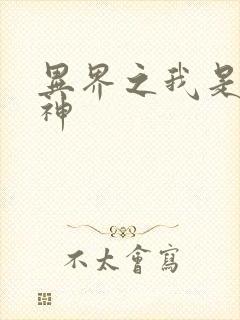 異界之我是
神
不太會寫